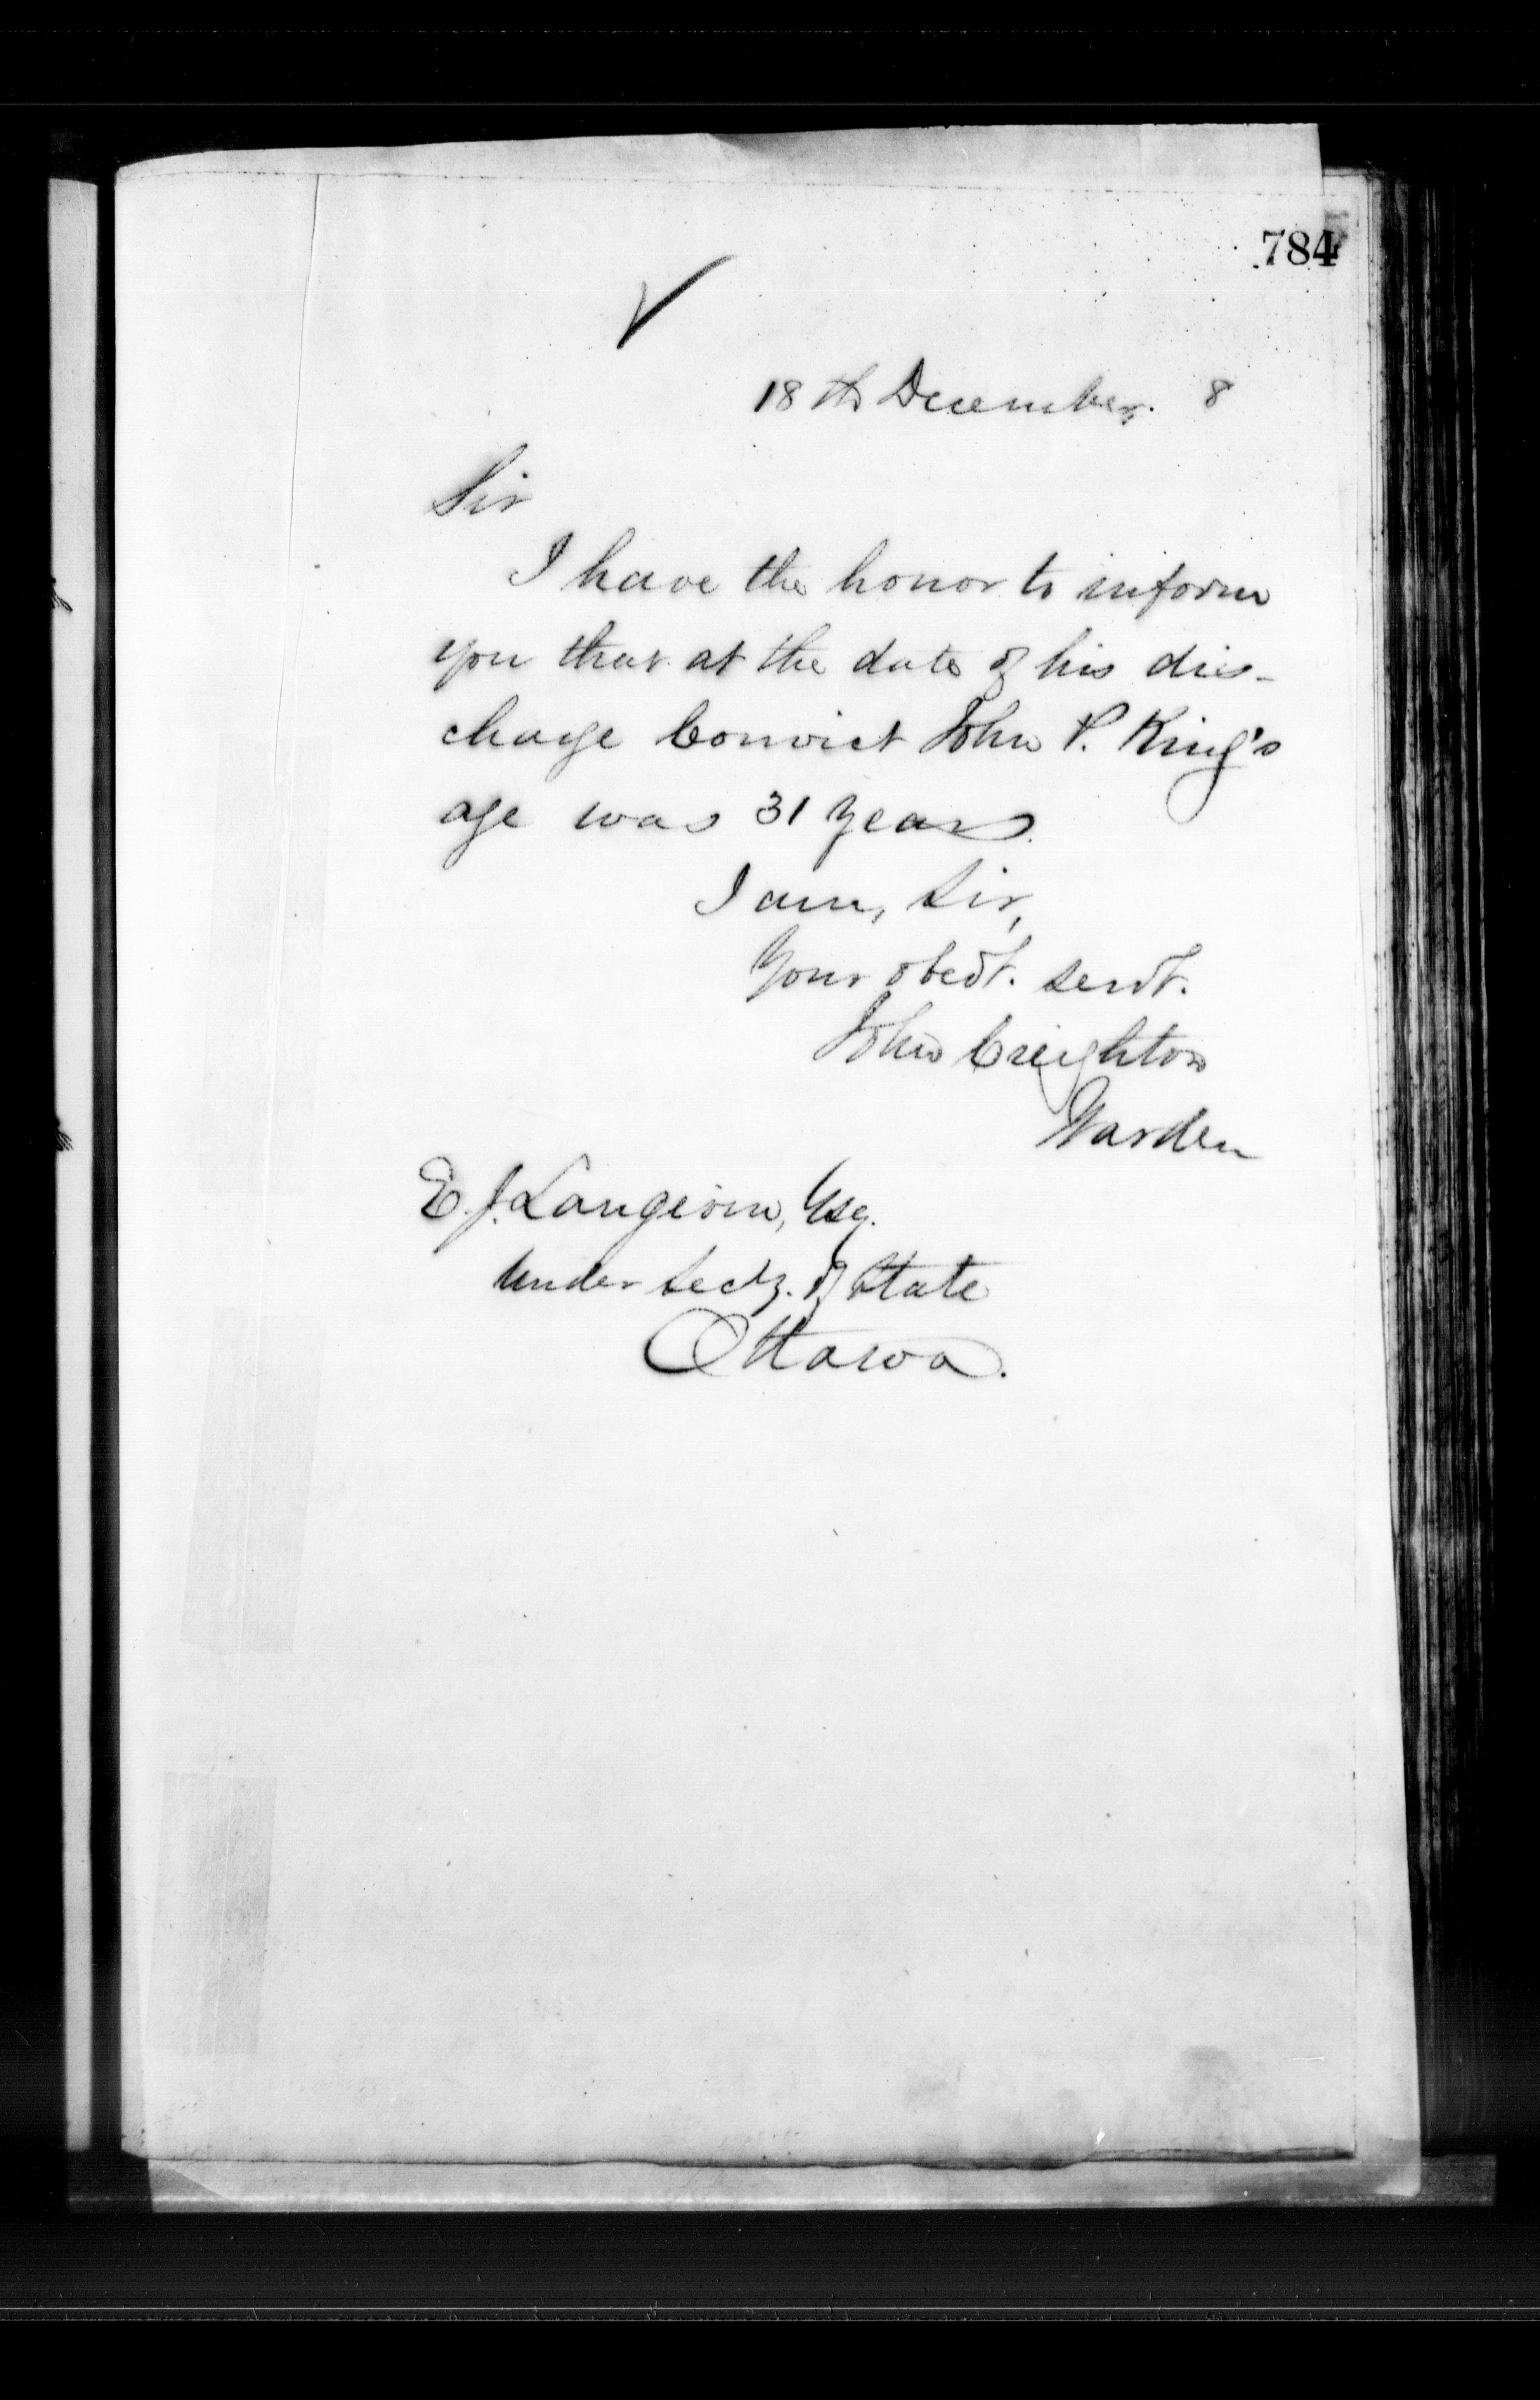 784
18th December. 8
Sir
I have the honor to inform
you that at the date of his dis-
charge Convict John P. King's
age was 31 years.
I am, Sir,
Your obedt. servt.
John Creighton
Warden
E. J. Langevin, Esq.
Under Secty. of State
Ottawa.